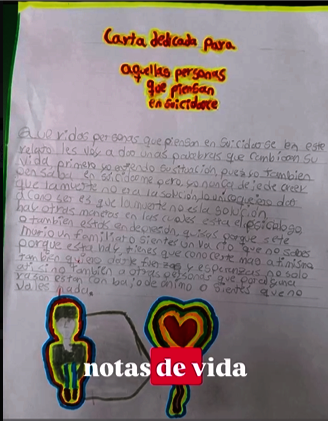 Carta dedicada para
aquellas personas
que piensan
en suicidarce
Queridos personas que piensan en Suicidarse en este
relato les voy a dar unas palabras que cambiaran su
vida primero yo entiendo su situación pues yo tambien
pensaba en suicidarme pero yo nunca deje de creer
que la muerte no era la solución lo unico que es dar
a conocer es que la muerte no es la solución
hay otras maneras en las cuales esta el psicologo
o tambien estas en depresión, quisas porque se te
murio un familiar o sientes un vacio que no sabes
porque esta hay, tienes que conocerte mas a ti misma
tambien quiero darte fuerzas y esperanzas no solo
a ti sino tambien a otras personas que por alguna
rason estan con bajo de animo o sientes que no
vales nada.
notas de vida